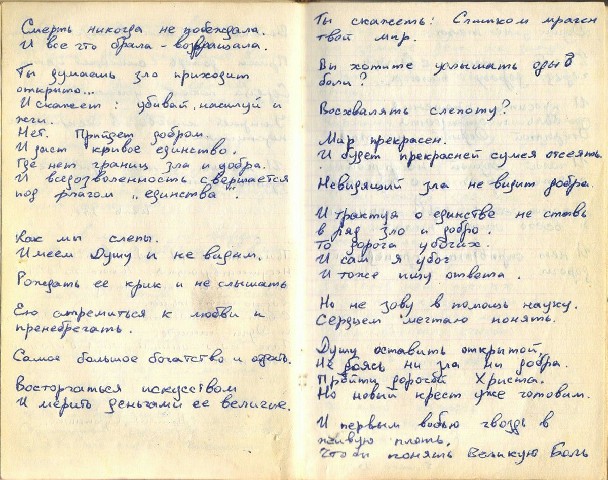 Смерть никогда не побеждала.
И все что брала - возвращала.
Ты думаешь зло приходит
открыто...
И скажет: убивай, насилуй и
жги.
Нет. Придет добром.
И даст кривое единство.
Где нет границ зла и добра.
И вседозволенность свершается
под флагом „единства".
Как мы слепы.
Имеем Душу и не видим.
Рождать ее крик и не слышать
Ею стремиться к любви и
пренебрегать.
Самое большое богатство и
Восторгаться искусством
И мерить деньгами ее величие.
Ты скажешь: Слишком мрачен
твой мир.
Вы хотите услышать оды
боли?
Восхвалять слепоту?
Мир прекрасен.
И будет прекрасней сумея отсеять.
Невидящий зла не видит добра.
И трактуя о единстве не ставь
в ряд зло и добро.
То дорога убогих.
И сам я убог
И тоже ищу ответа.
Но не зову в помощь науку.
Сердцем мечтаю понять.
Душу оставить открытой,
Не боясь ни зла ни добра.
Пройти дорогой Христа.
Но новый крест уже готовим.
И первым вобью гвоздь в
живую плоть,
Чтобы понять Великую Боль